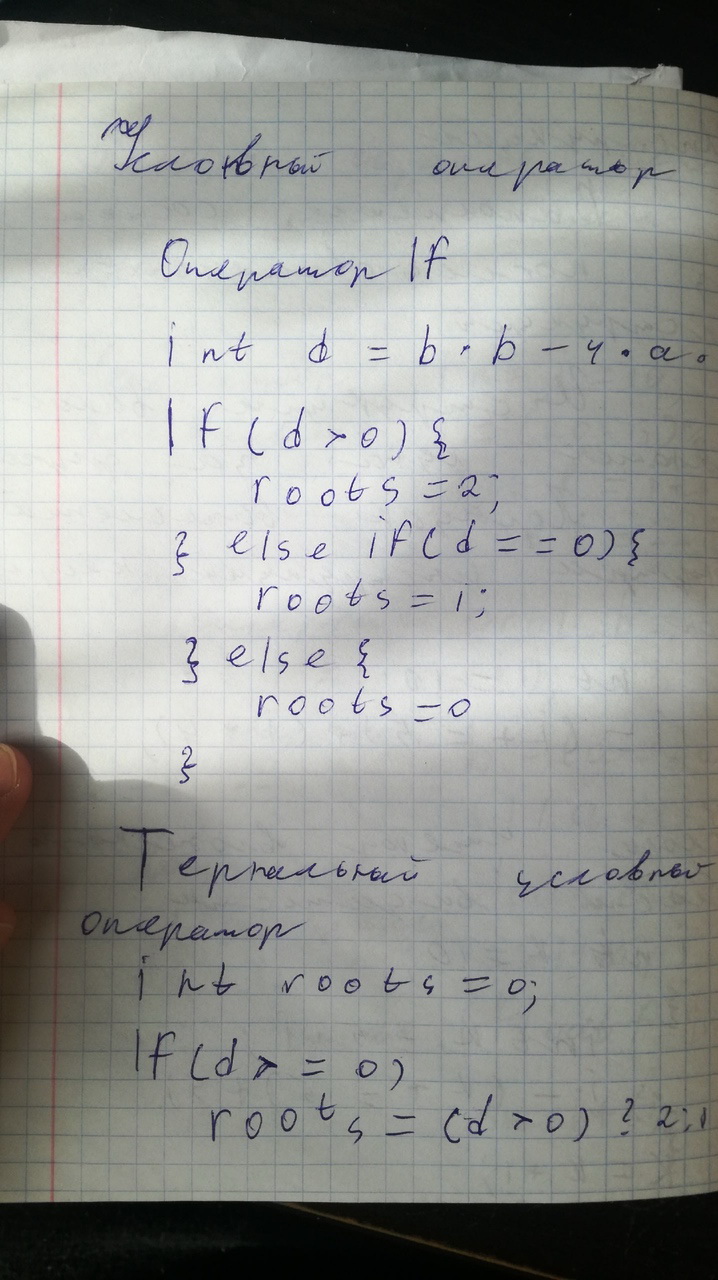 Условный оператор
Оператор If
int d = b · b - 4 · a ·
If (d > 0) {
roots = 2;
} else if (d == 0) {
roots = 1;
} else {
roots = 0
}
Тернальный условный
оператор
int roots = 0;
If (d >= 0)
roots = (d > 0) ? 2:1